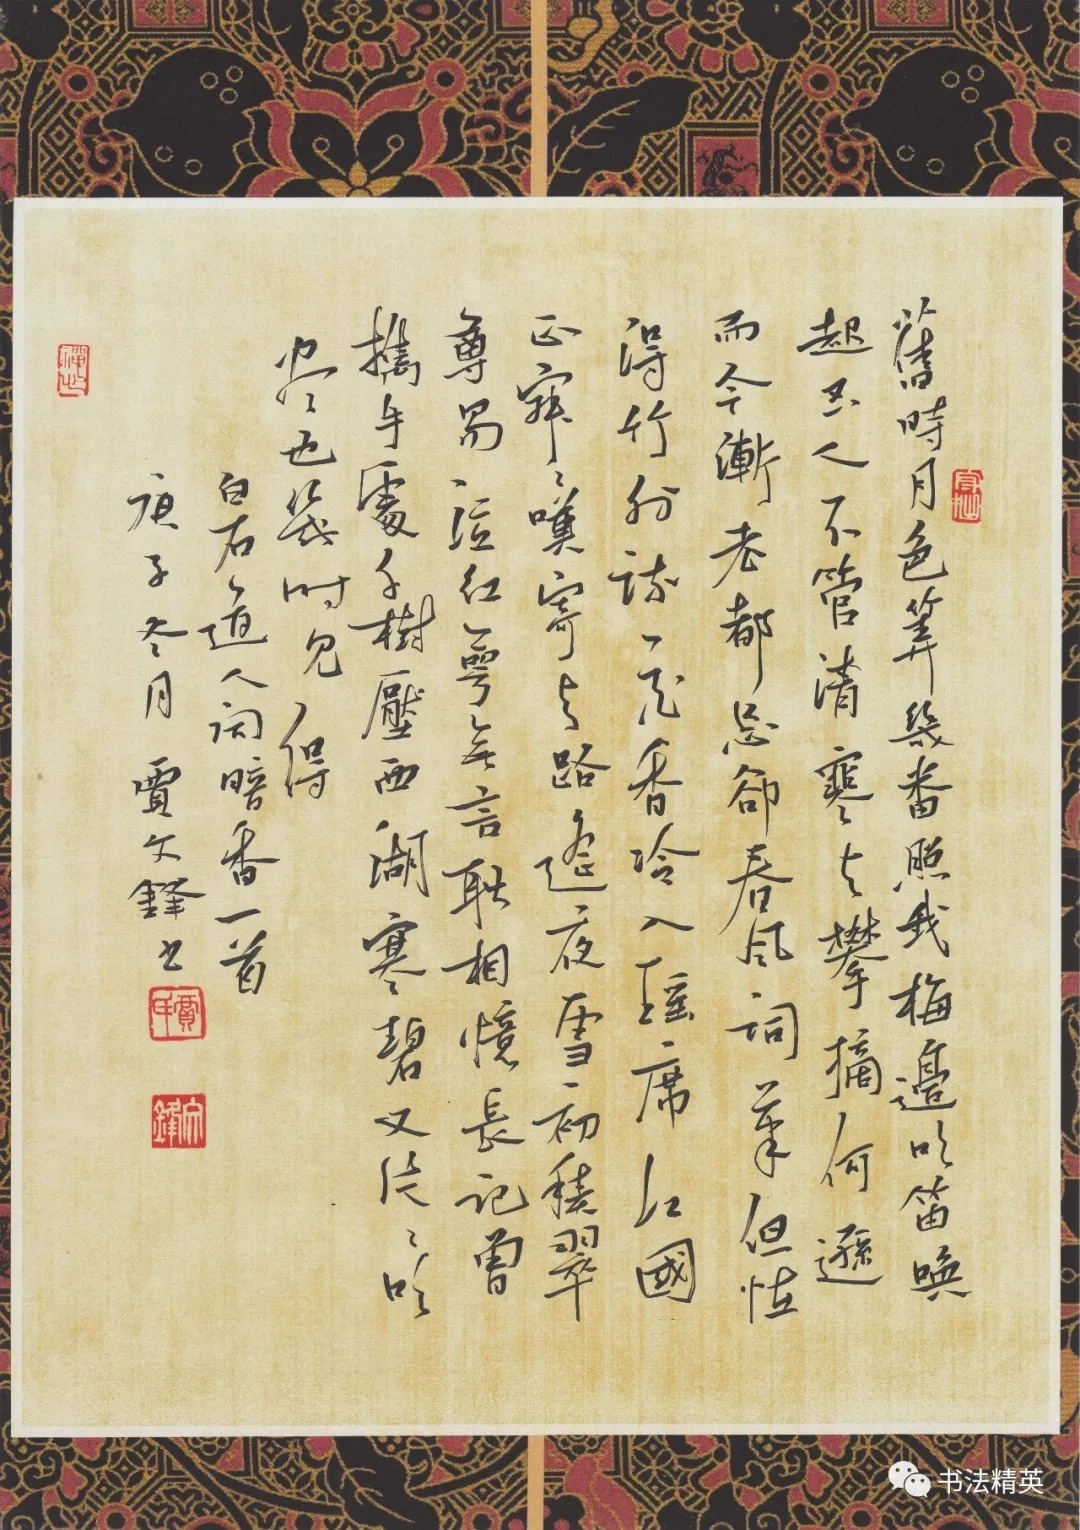 舊時月色算幾番照我梅邊吹笛喚
起玉人不管清寒與攀摘何遜
而今漸老都忘卻春風詞筆但怪
得竹外疏花香冷入瑤席江國
正寂〻嘆寄與路遙夜雪初積翠
尊易泣紅萼無言耿相憶長記曾
攜手處千樹壓西湖寒碧又片〻吹
盡也幾時見得
白石道人詞暗香一首
庚子冬月賈文鋒書
賈
文鋒
书法精英